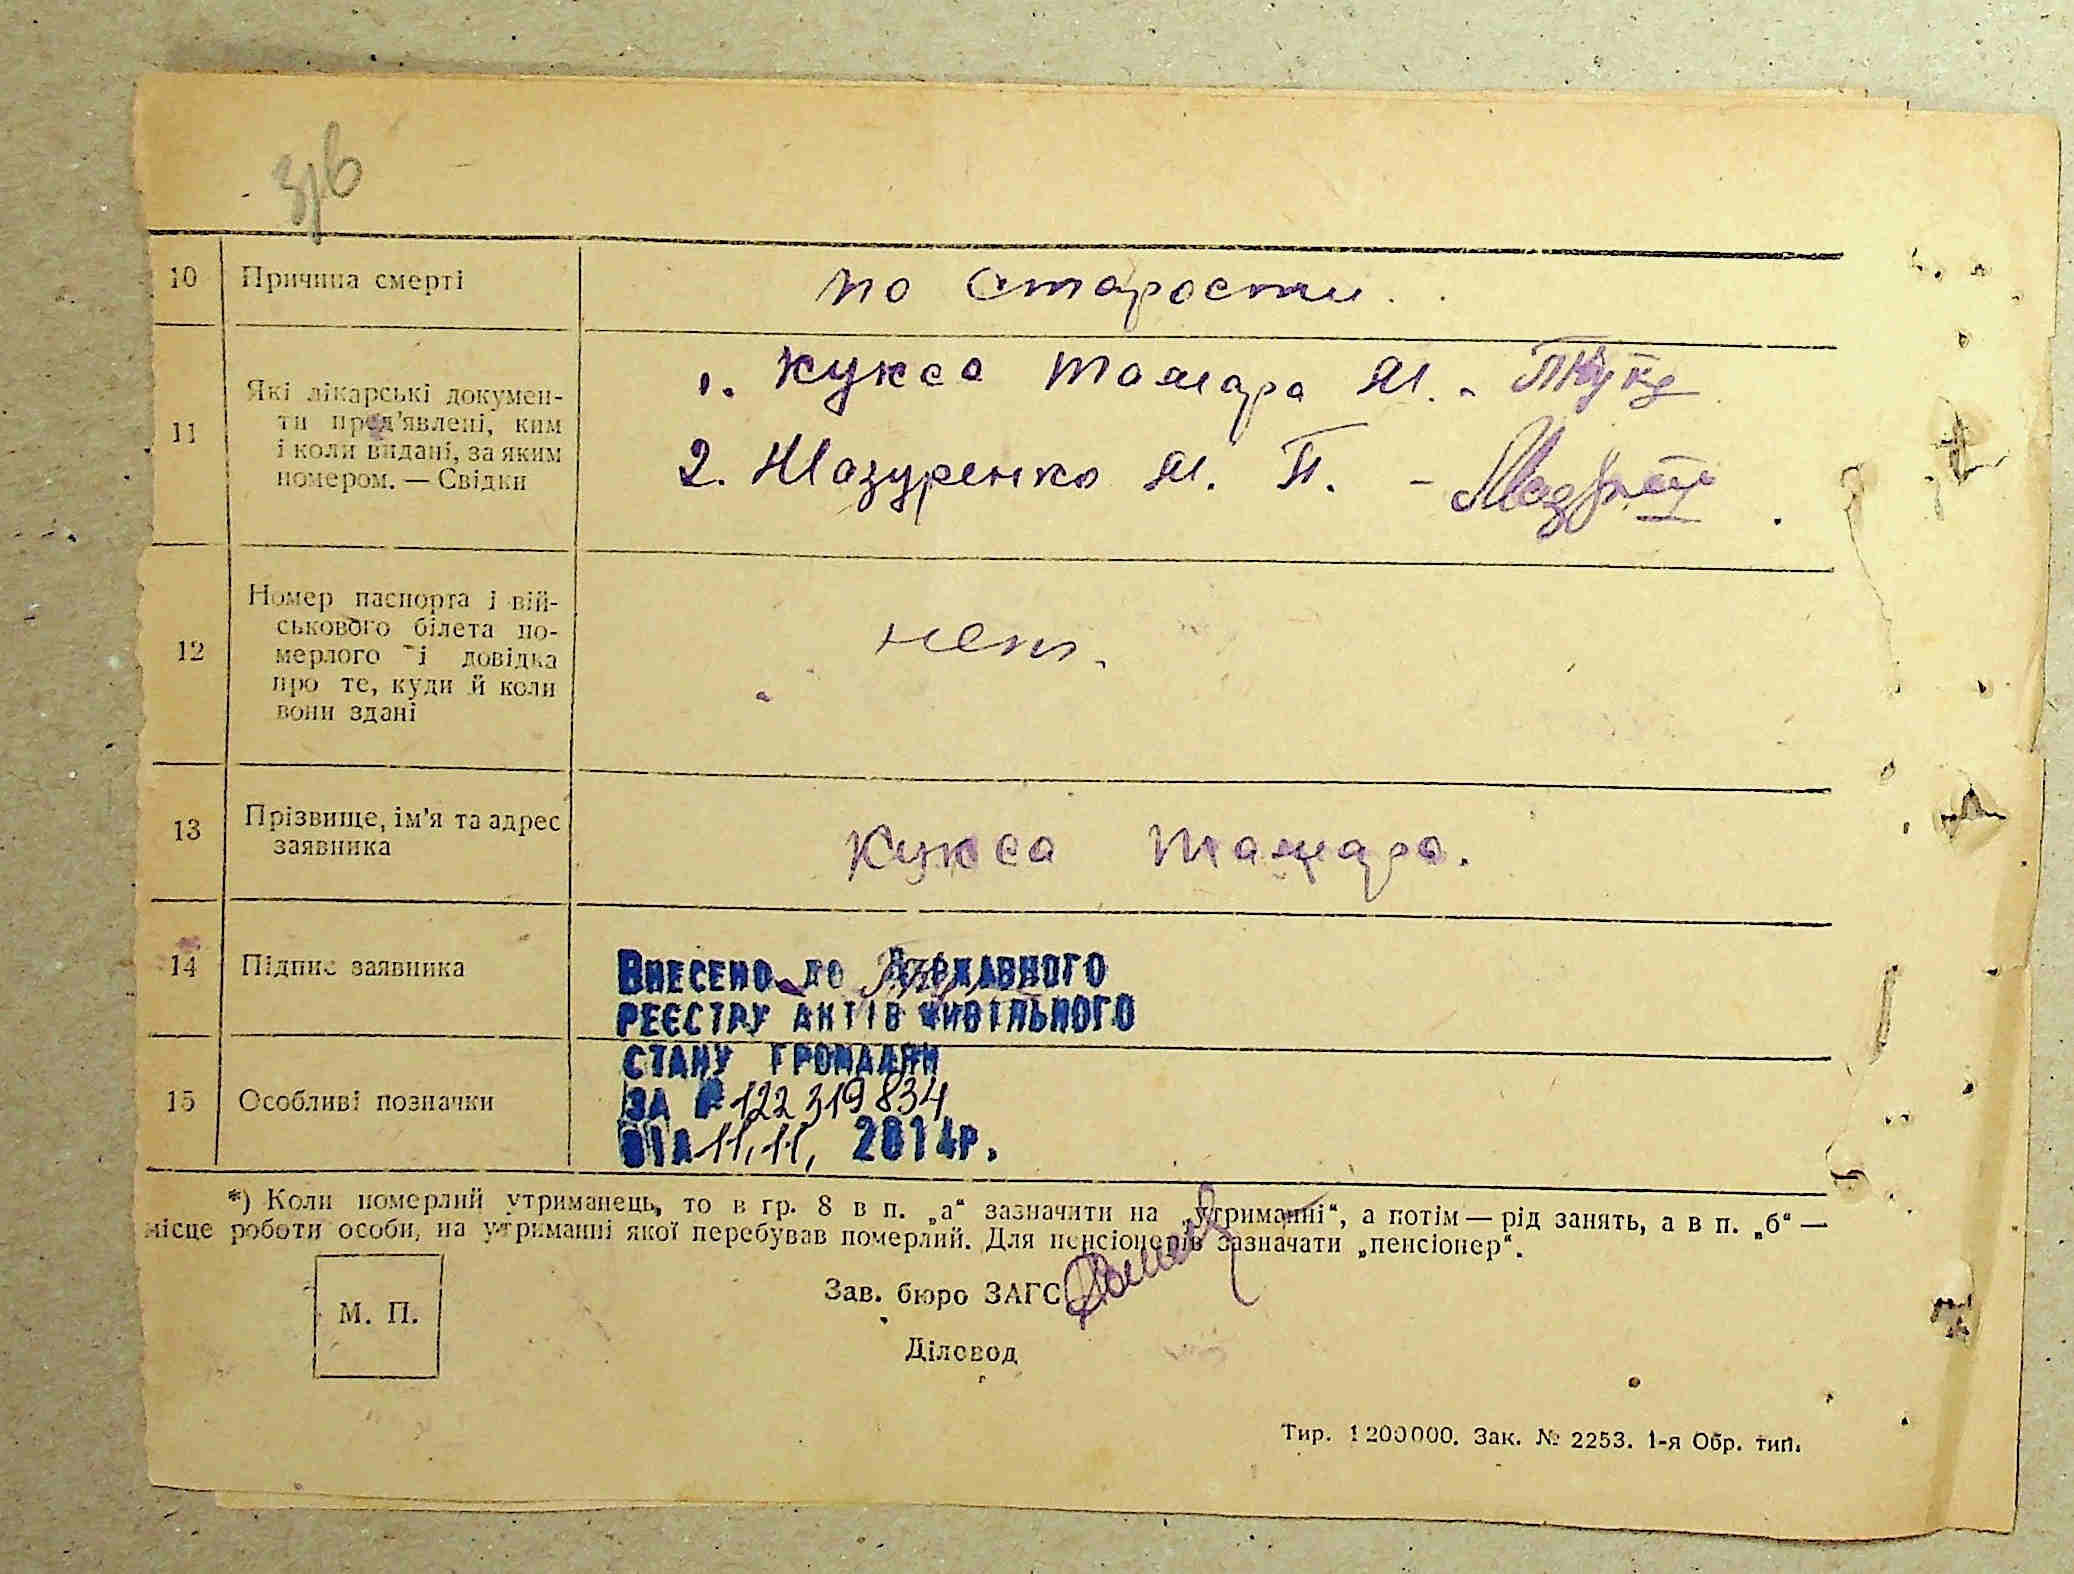 10 Причина смерті по старости.
11 Які лікарські докумен-
ти пред'явлені, ким
і коли видані, за яким
номером. — Свідки
1. Кукса Тамара М. -
2. Мазуренко М. П. -
12 Номер паспорта і вій-
ськового білета по-
мерлого і довідка
про те, куди й коли
вони здані
нет.
13 Прізвище, ім'я та адрес
заявника
Кукса Тамара.
14 Підпис заявника
ВНЕСЕНО ДО ДЕРЖАВНОГО
РЕЄСТРУ АКТІВ ЦИВІЛЬНОГО
СТАНУ ГРОМАДЯН
15 Особливі позначки
ЗА № 122 319 834
ВІД 11.11. 2014р.
*) Коли померлий утриманець, то в гр. 8 в п. „а“ зазначити на „утриманні“, а потім — рід занять, а в п. „б“ —
місце роботи особи, на утриманні якої перебував померлий. Для пенсіонерів зазначати „пенсіонер“.
Зав. бюро ЗАГС
М. П.
Діловод
Тир. 1200000. Зак. № 2253. 1-я Обр. тип.